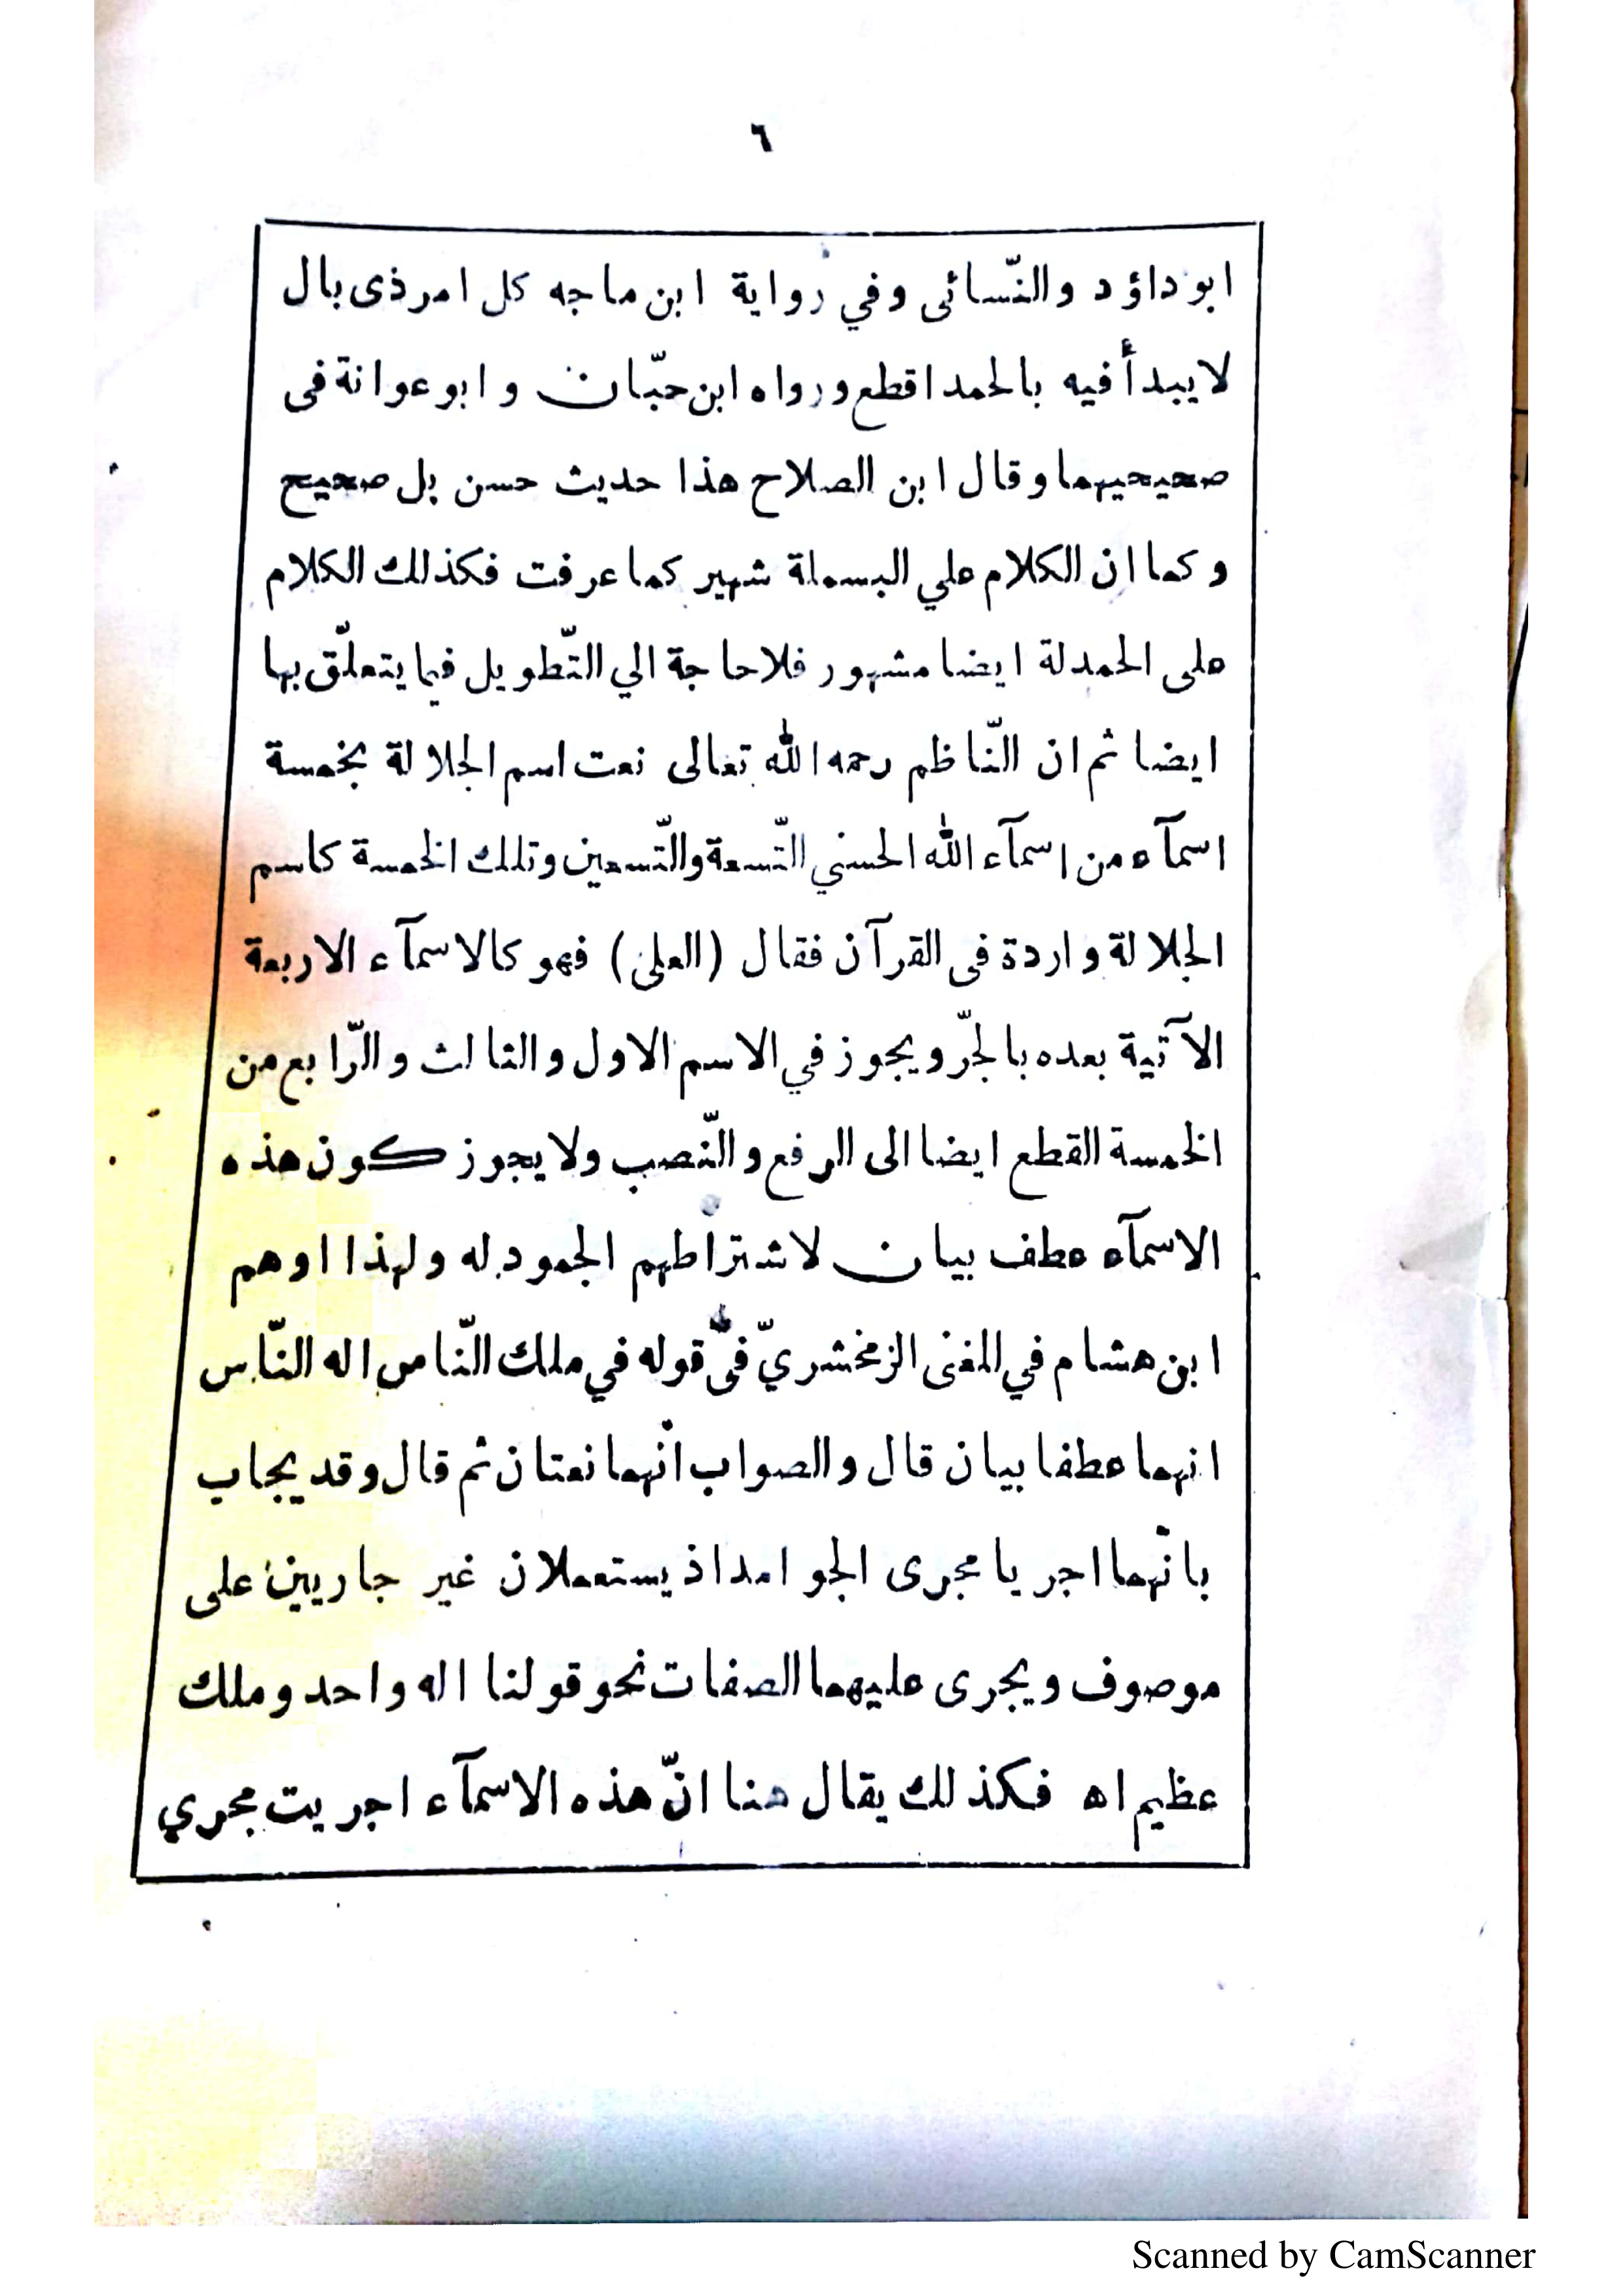 ٦
ابو داؤد والنّسائى وفي رواية ابن ماجه كل امر ذى بال
لايبدأ فيه بالحمد اقطع ورواه ابن حبّان وابو عوانة فى
صحيحيهما وقال ابن الصلاح هذا حديث حسن بل صحيح
وكما ان الكلام علي البسملة شهير كما عرفت فكذلك الكلام
على الحمدلة ايضا مشهور فلاحاجة الي التّطويل فيما يتعلّق بها
ايضا ثم ان النّاظم رحمه الله تعالى نعت اسم الجلالة بخمسة
اسمآء من اسمآء الله الحسني التّسعة والتّسعين وتلك الخمسة كاسم
الجلالة واردة فى القرآن فقال (العلى) فهو كالاسمآء الاربعة
الآتية بعده بالجرّ ويجوز في الاسم الاول والثالث والرّابع من
الخمسة القطع ايضا الى الرفع والنّصب ولايجوز كون هذه
الاسمآء عطف بيان لاشتراطهم الجمود له ولهذا اوهم
ابن هشام في المغنى الزمخشريّ فى قوله في ملك النّاس اله النّاس
انهما عطفا بيان قال والصواب انّهما نعتان ثم قال وقد يجاب
بانّهما اجريا مجرى الجوامد اذ يستعملان غير جاريين على
موصوف ويجرى عليهما الصفات نحو قولنا اله واحد وملك
عظيم اه فكذلك يقال هنا انّ هذه الاسمآء اجريت مجري
Scanned by CamScanner